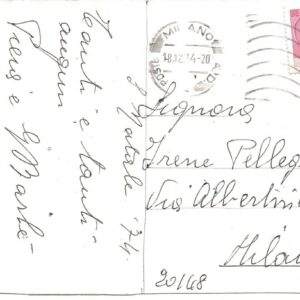 S Natale '74.
Tanti e tanti
auguri
Piera e G Barbe-
MILANO
18.12.74-20
POSTE
Signora
Irene Pelleg
Via Albertin
Milan
20148